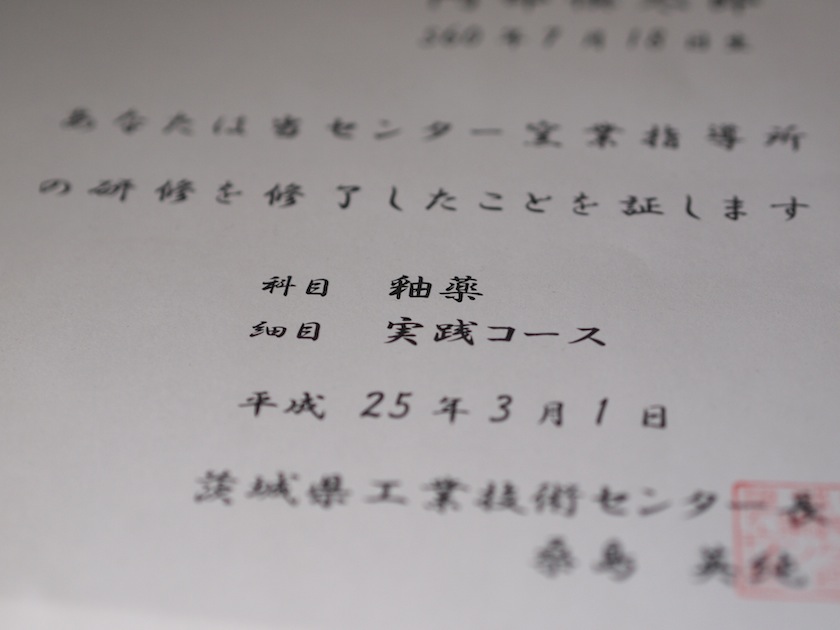 年7月18日生
あなたは当センター窯業指導所
の研修を修了したことを証します
科目 釉薬
細目 実践コース
平成 25 年 3 月 1 日
茨城県工業技術センター長
桑島 英純